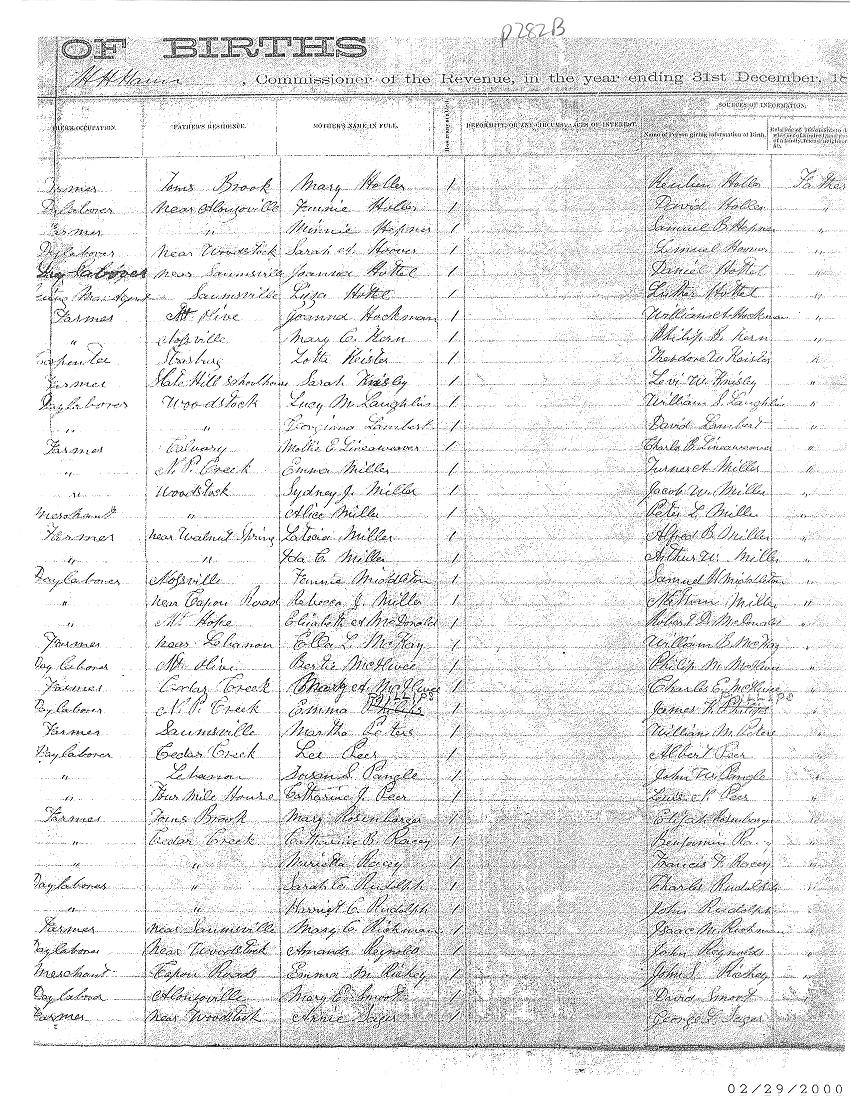 P282B
OF BIRTHS
, Commissioner of the Revenue, in the year ending 31st December, 18
SOURCES OF INFORMATION.
FATHER'S RESIDENCE. MOTHER'S NAME IN FULL. DEFORMITY, OR ANY CIRCUMSTANCES OF INTEREST. Name of Person giving information of Birth.
Farmer Toms Brook Mary Holler 1 Reuben Holler Father
Daylaborer near Alonzoville Fennie Holler 1 David Holler "
Farmer " Minnie Hepner 1 Samuel B. Hepner "
Daylaborer near Woodstock Sarah A. Hoover 1 Lemuel Hoover "
Daylaborer near Saumsville Joanna Hottel 1 Daniel Hottel "
Saumsville Lusa Hottel 1 Luther Hottel "
Farmer Mt Olive Joanna Hockman 1 William A. Hockman "
" Mary C. Kern 1 Philip B. Kern "
Carpenter Strasburg Lotta Keister 1 Theodore W. Keister "
Farmer Slate Hill Schoolhouse Sarah Knisley 1 Levi W. Knisley "
Daylaborer Woodstock Lucy McLaughlin 1 William S. Laughlin "
" " Georgiana Lambert 1 David Lambert "
Farmer Calvary Mollie E. Lineaweaver 1 Charls B. Lineaweaver "
" N. P. Creek Emma Miller 1 Turner A. Miller "
" Woodstock Sydney J. Miller 1 Jacob W. Miller "
Merchant " Alice Miller 1 Peter L. Miller "
Farmer near Walnut Spring Miller 1 Alfred B. Miller "
" " Ida C. Miller 1 Arthur W. Miller "
Daylaborer Fennie Middleton 1 Samuel H. Middleton "
" near Capon Road Rebecca J. Miller 1 Nathan Miller "
" Mt Hope Elizabeth A. McDonald 1 Robert D. McDonald "
Farmer near Lebanon Ella L. McKay 1 William E. McKay "
Daylaborer Mt Olive Bertie McIlwee 1 Philip M. McIlwee "
Farmer Cedar Creek Mary A. McIlwee 1 Charles E. McIlwee "
PHILLIPS PHILLIPS
Daylaborer N. P. Creek Emma 1 James H. Philips "
Farmer Saumsville Martha Peters 1 William M. Peters "
Daylaborer Cedar Creek Lee Peer 1 Albert Peer "
" Lebanon Susan S. Pangle 1 John W. Pangle "
" Four Mile House Catharine J. Peer 1 Lewis N. Peer "
Farmer Toms Brook Mary Rosenbarger 1 Elijah Rosenbarger "
" Cedar Creek Catharine B. Racey 1 Benjamin Racey "
" Murietta Racey 1 Francis F. Racey "
Daylaborer " Sarah C. Rudolph 1 Charles Rudolph "
" " Harriet C. Rudolph 1 John Rudolph "
Farmer near Saumsville Mary C. Richman 1 Isaac M. Richman "
Daylaborer near Woodstock Amanda Reynold 1 John Reynolds "
Merchant Capon Roads Emma M. Rickey 1 John S. Rickey "
Daylabord Alonzoville Mary E. Smoot 1 David Smoot "
Farmer near Woodstock Annie Sager 1 George L. Sager "
02/29/2000